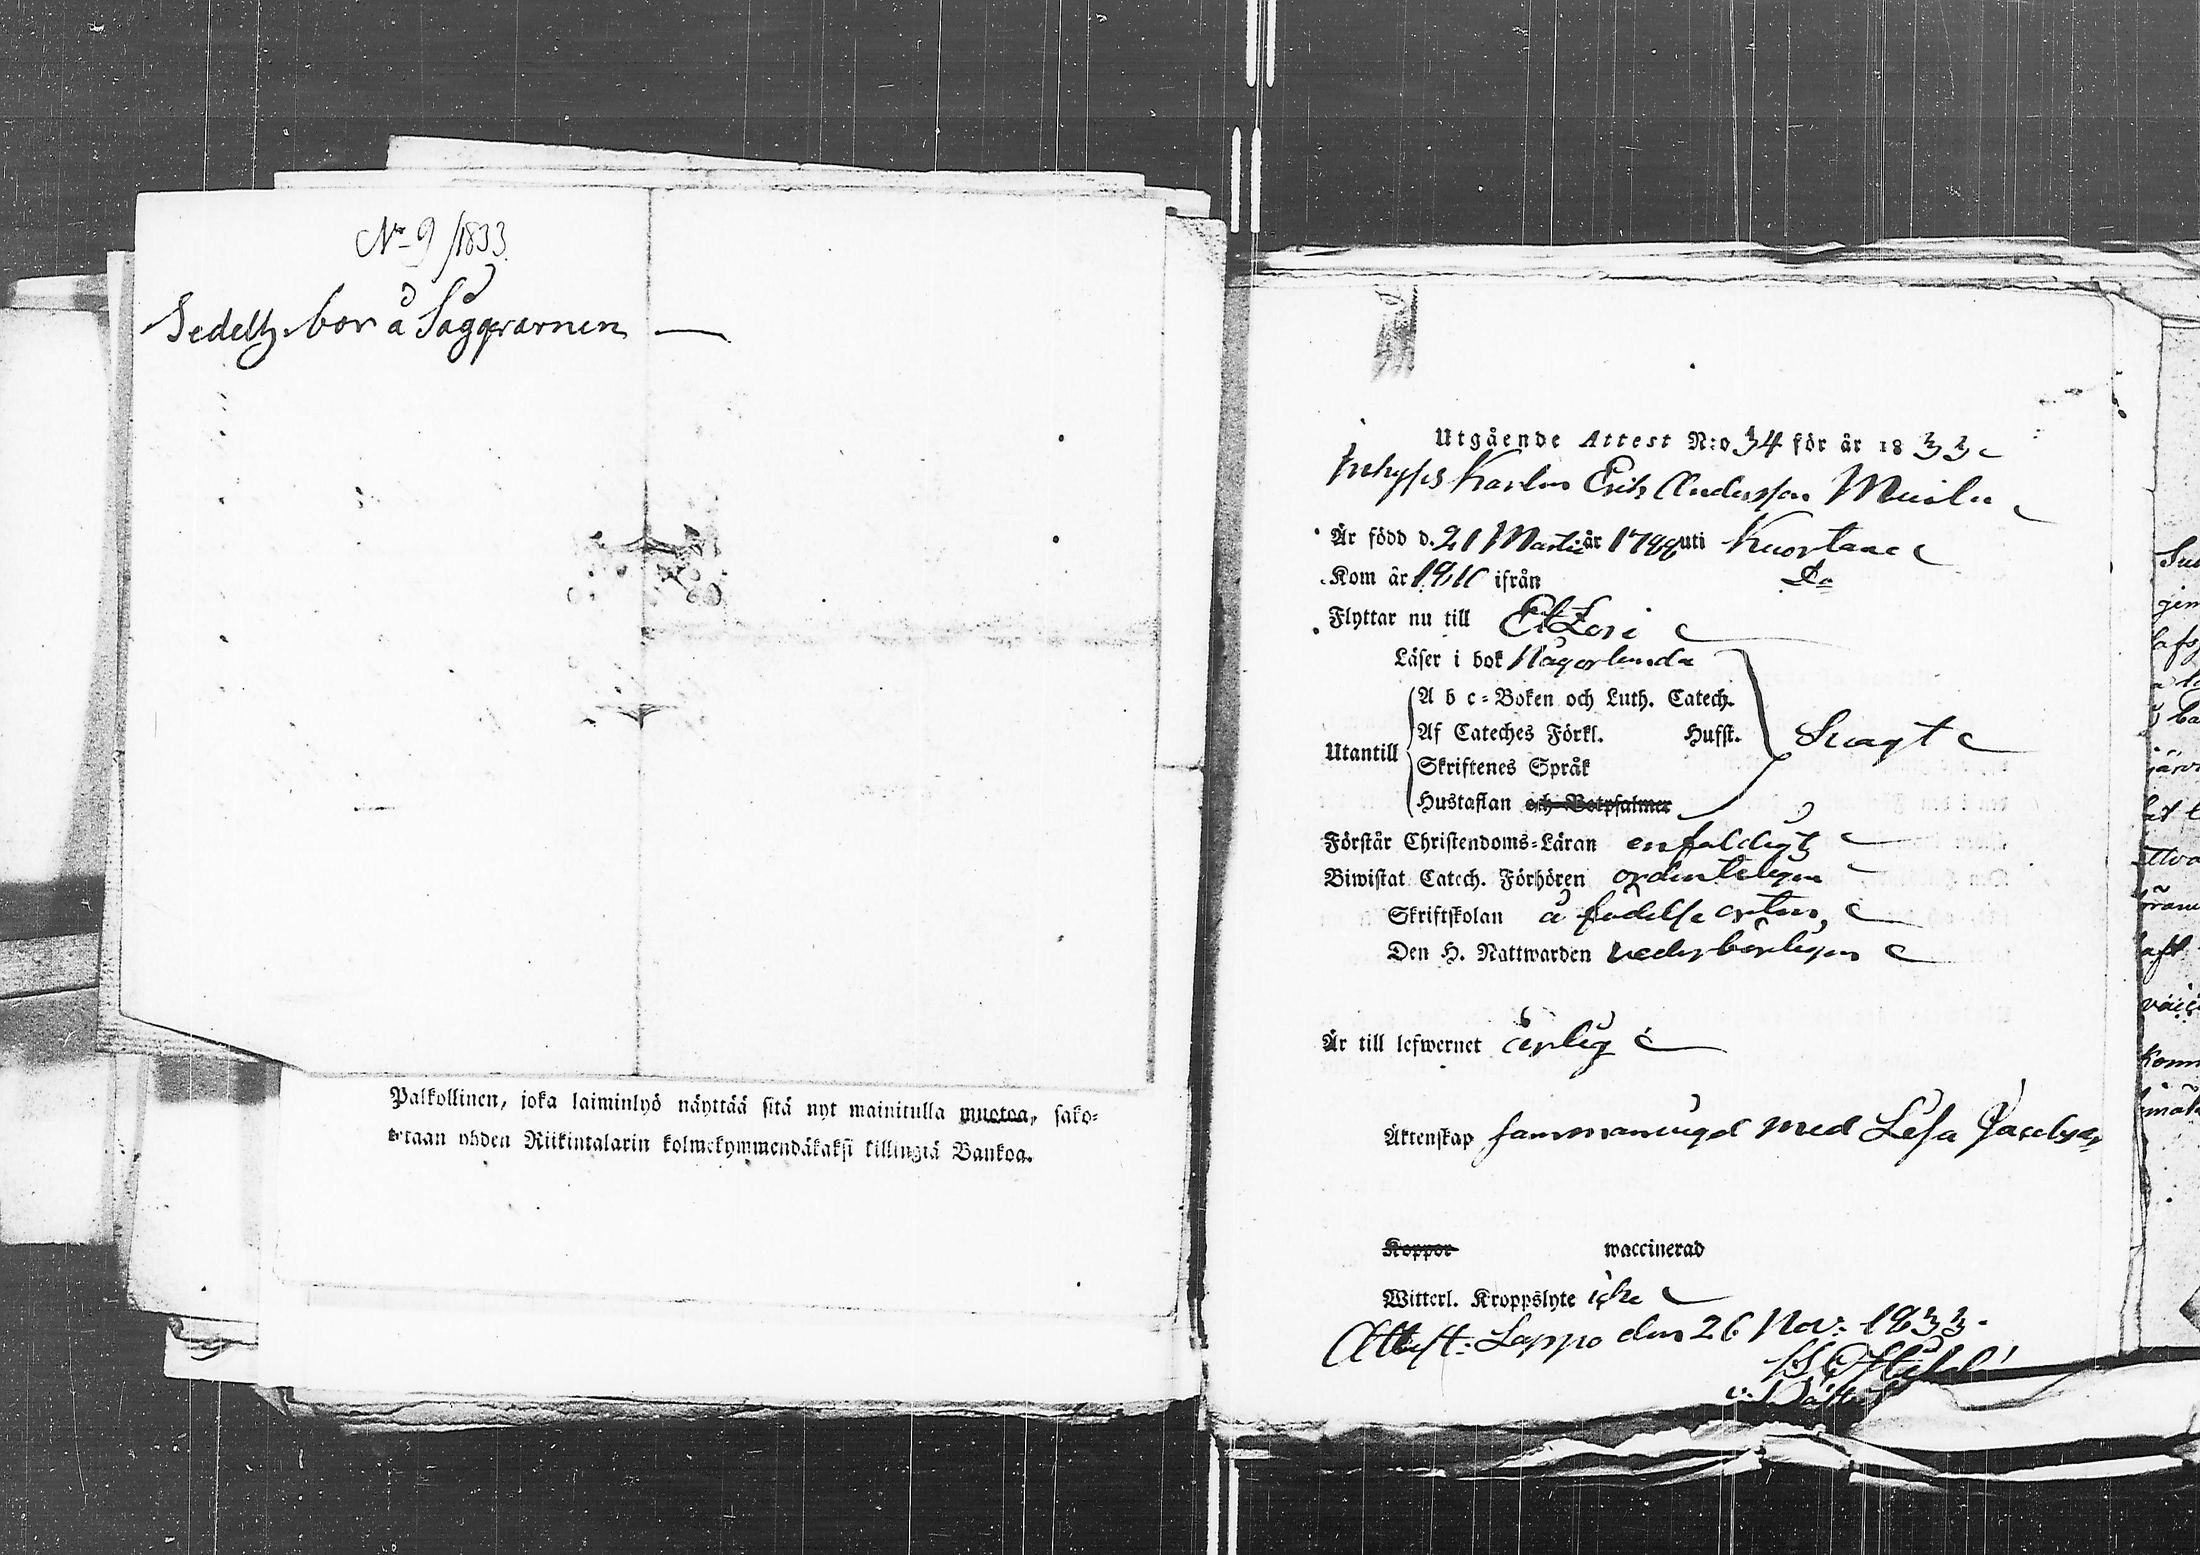 No 9/1833.
Sedeltz. bor å Sågqvarnen —
Palkollinen, joka laiminlyö näyttää sitä nyt mainitulla muotoa, sako-
tetaan yhden Riikintalarin kolmekymmendäkaksi killingiä Bankoa.
Utgående Attest N:o 34 för år 1833
Inhyses Karlen Erik Andersson
Är född d. 21 Martii år 1788 uti Kuortane
Kom år ifrån Do
Flyttar nu till Etzeri
Läser i bok Någorlunda
A b c-Boken och Luth. Catech.
Af Cateches Förkl. Hufst.
Utantill Svagt
Skriftenes Språk
Hustaflan och Botpsalmer
Förstår Christendoms-Läran enfaldigt
Biwistat Catech. Förhören ordenteligen
Skriftskolan å födelse orten,
Den H. Nattwarden vederbörligen
Är till lefwernet ärlig
Äktenskap sammanvigd med Lisa
Koppor waccinerad
Witterl. Kroppslyte icke
Attest: Lappo den 26 Nov: 1833.